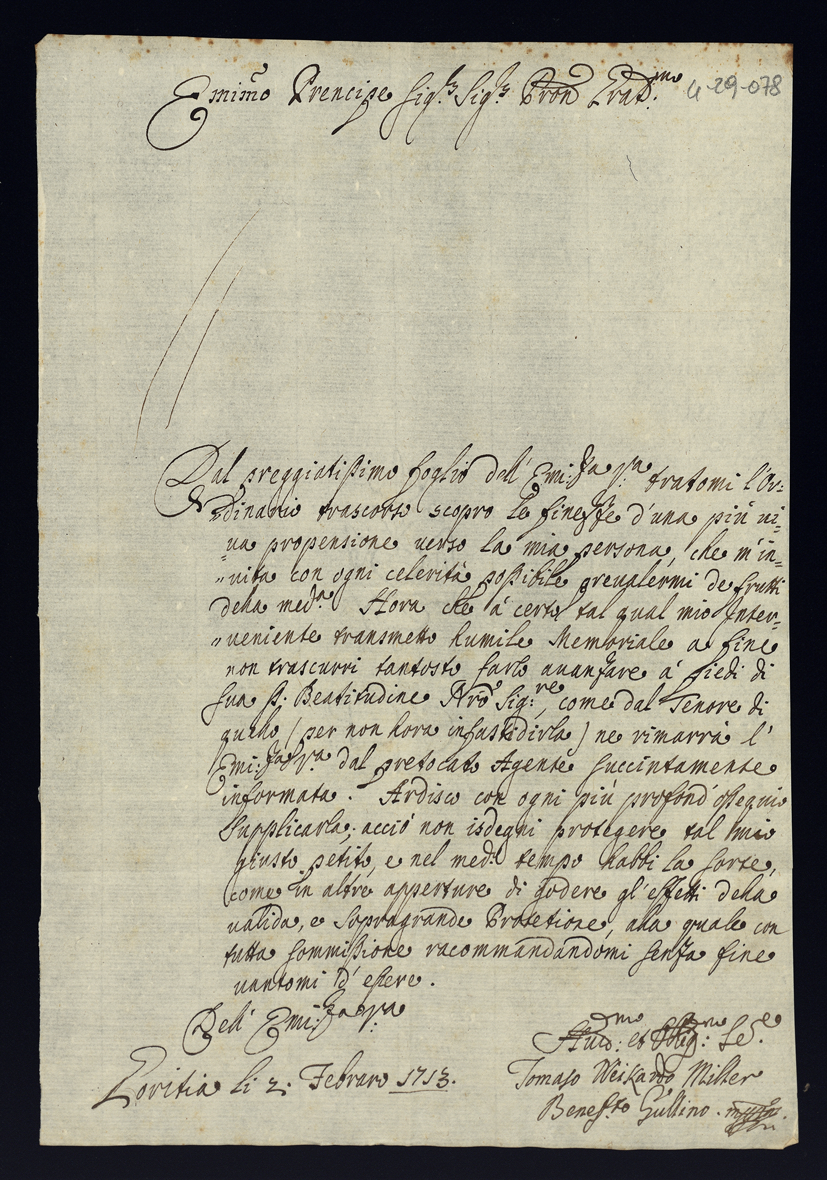 Emin͠o Prencipe Sig.r Sig.r Pron Prad.mo
4-29-078
Dal preggiatissimo foglio dell' Emi:za V:ra tratomi l'Or-
dinario trascorso scopro le finesse d'una più vi-
va propensione verso la mia persona, che m'in-
vita con ogni celerità possibile prevalermi de frutti
della med.ma Hora che à certo tal qual mio Inter-
veniente transmetto humile Memoriale a fine
non trascurri tantosto farlo avanzare à piedi di
Sua S. Beatitudine Nr͠o Sig:re, come dal Tenore di
quello (per non hora infastidirla) ne rimarrà l'
Emi:za V:ra dal pretocato Agente succintamente
informata. Ardisco con ogni più profond'ossequio
Supplicarla, acciò non isdegni protegere tal mio
giusto petito, e nel med:o tempo habbi la sorte,
come in altre apperture di godere gl'effetti della
valida, e sopragrande Protetione, alla quale con
tutta sommissione racommandandomi senza fine
vantomi d'essere.
Dell' Emi:za V:ra
Goritia li 2. Febraro 1713.
et Obblig:mo Se:e
Tomaso Weikardo Miller